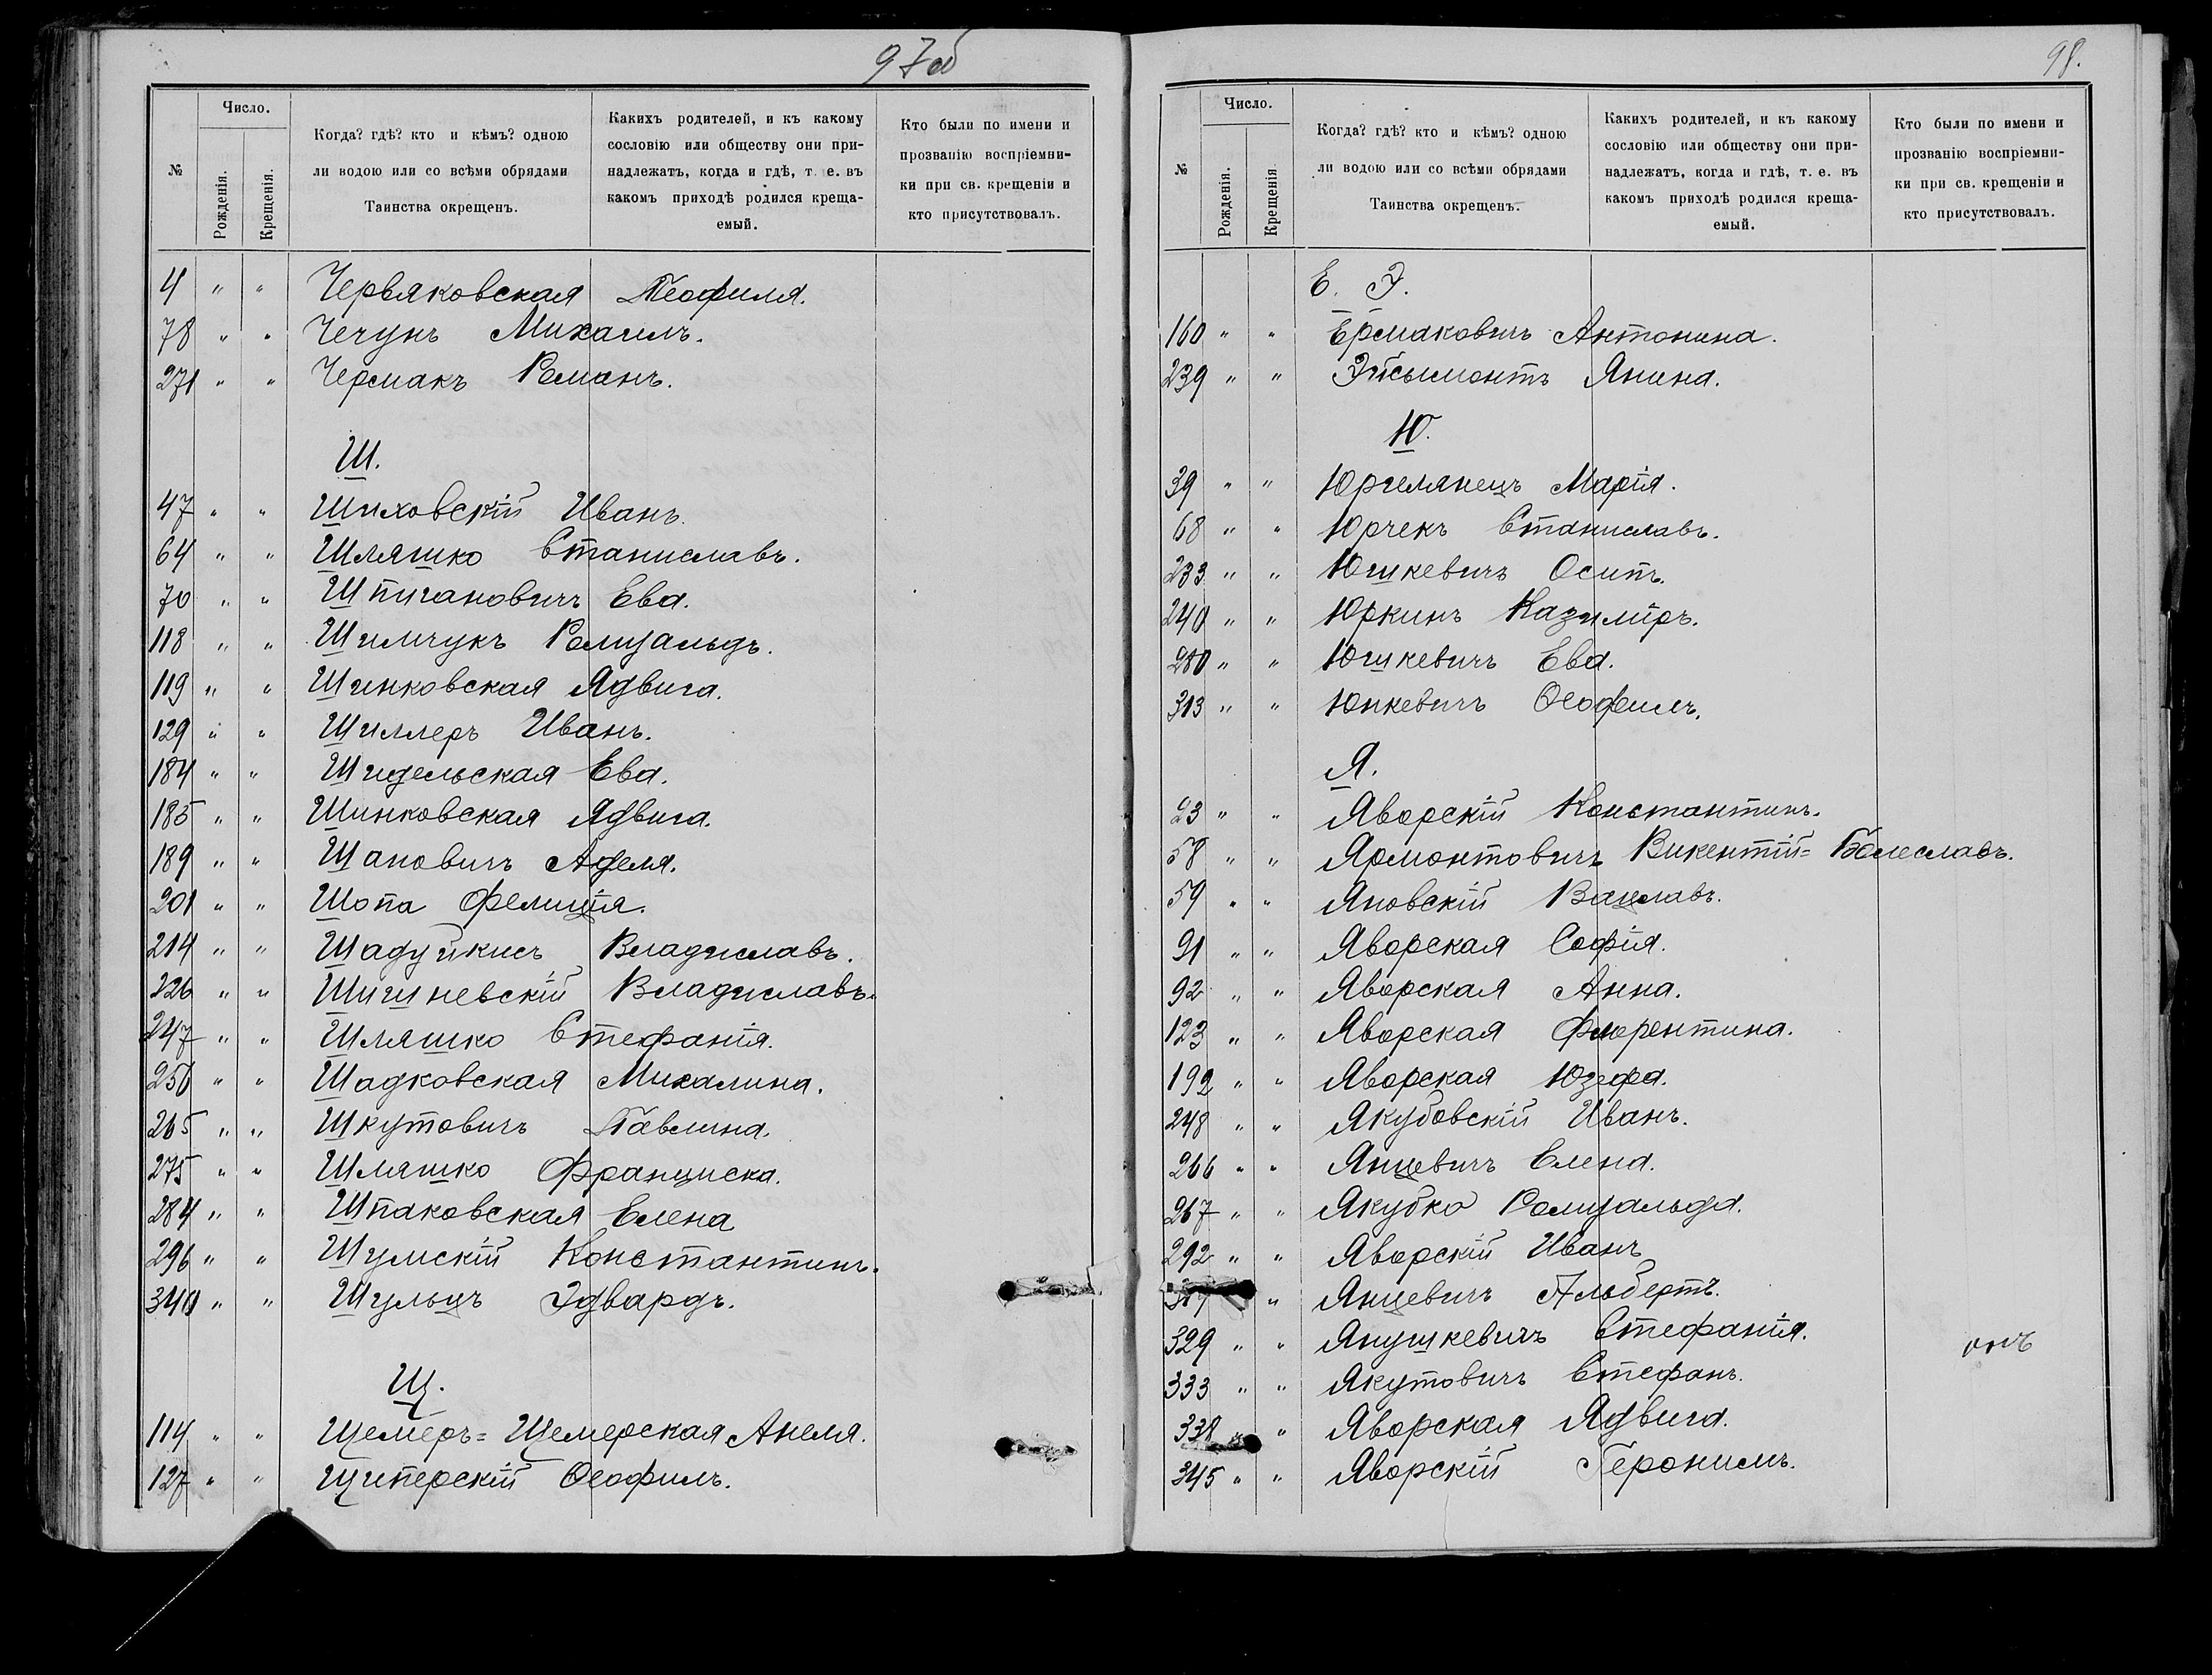 97об
№
Число.
Рожденія.
Крещенія.
Когда? гдѣ? кто и кѣмъ? одною
ли водою или со всѣми обрядами
Таинства окрещенъ.
Какихъ родителей, и къ какому
сословію или обществу они при-
надлежатъ, когда и гдѣ, т. е. въ
какомъ приходѣ родился креща-
емый.
Кто были по имени и
прозванію воспріемни-
ки при св. крещеніи и
кто присутствовалъ.
4 " " Червяковская Теофиля.
78 " " Чечунъ Михаилъ.
271 " " Чермакъ Романъ.
Ш.
47 " " Шиховскій Иванъ.
64 " " Шляшко Станиславъ.
70 " " Шпигановичъ Ева.
118 " " Шимчукъ Ромуальдъ.
119 " " Шинковская Ядвига.
129 " " Шиллеръ Иванъ.
184 " " Шидельская Ева.
185 " " Шинковская Ядвига.
189 " " Шановичъ Аделя.
201 " " Шопа Фелиція.
214 " " Шадуйкисъ Владиславъ.
226 " " Шишневскій Владиславъ.
247 " " Шляшко Стефанія.
250 " " Шадковская Михалина.
265 " " Шкутовичъ Павлина.
275 " " Шляшко Франциска.
284 " " Шпаковская Елена
296 " " Шумскій Константинъ.
340 " " Шульцъ Эдвардъ.
Щ.
114 " " Щемеръ=Щемерская Анеля.
127 " " Щиперскій Ѳеофилъ.
98.
№
Число.
Рожденія.
Крещенія
Когда? гдѣ? кто и кѣмъ? одною
ли водою или со всѣми обрядами
Таинства окрещенъ.
Какихъ родителей, и къ какому
сословію или обществу они при-
надлежатъ, когда и гдѣ, т. е. въ
какомъ приходѣ родился креща-
емый.
Кто были по имени и
прозванію воспріемни-
ки при св. крещеніи и
кто присутствовалъ.
Е. Э.
160 " " Ермаковичъ Антонина.
239 " " Эйсымонтъ Янина.
Ю.
39 " " Юргелянецъ Марія.
68 " " Юрчекъ Станиславъ.
233 " " Юшкевичъ Осипъ.
240 " " Юркинъ Казиміръ.
280 " " Юшкевичъ Ева.
313 " " Юнкевичъ Ѳеофилъ.
Я.
23 " " Яворскій Константинъ.
58 " " Ярмонтовичъ Викентій=Болеславъ.
59 " " Яновскій Вацлавъ.
91 " " Яворская Софія.
92 " " Яворская Анна.
123 " " Яворская Флорентина.
192 " " Яворская Юзефа.
248 " " Якубовскій Иванъ.
266 " " Янцевичъ Елена.
267 " " Якубко Ромуальда.
292 " " Яворскій Иванъ
" Янцевичъ Альбертъ.
329 " " Янушкевичъ Стефанія.
333 " " Якутовичъ Стефанъ.
338 " " Яворская Ядвига.
345 " " Яворскій Геронимъ.